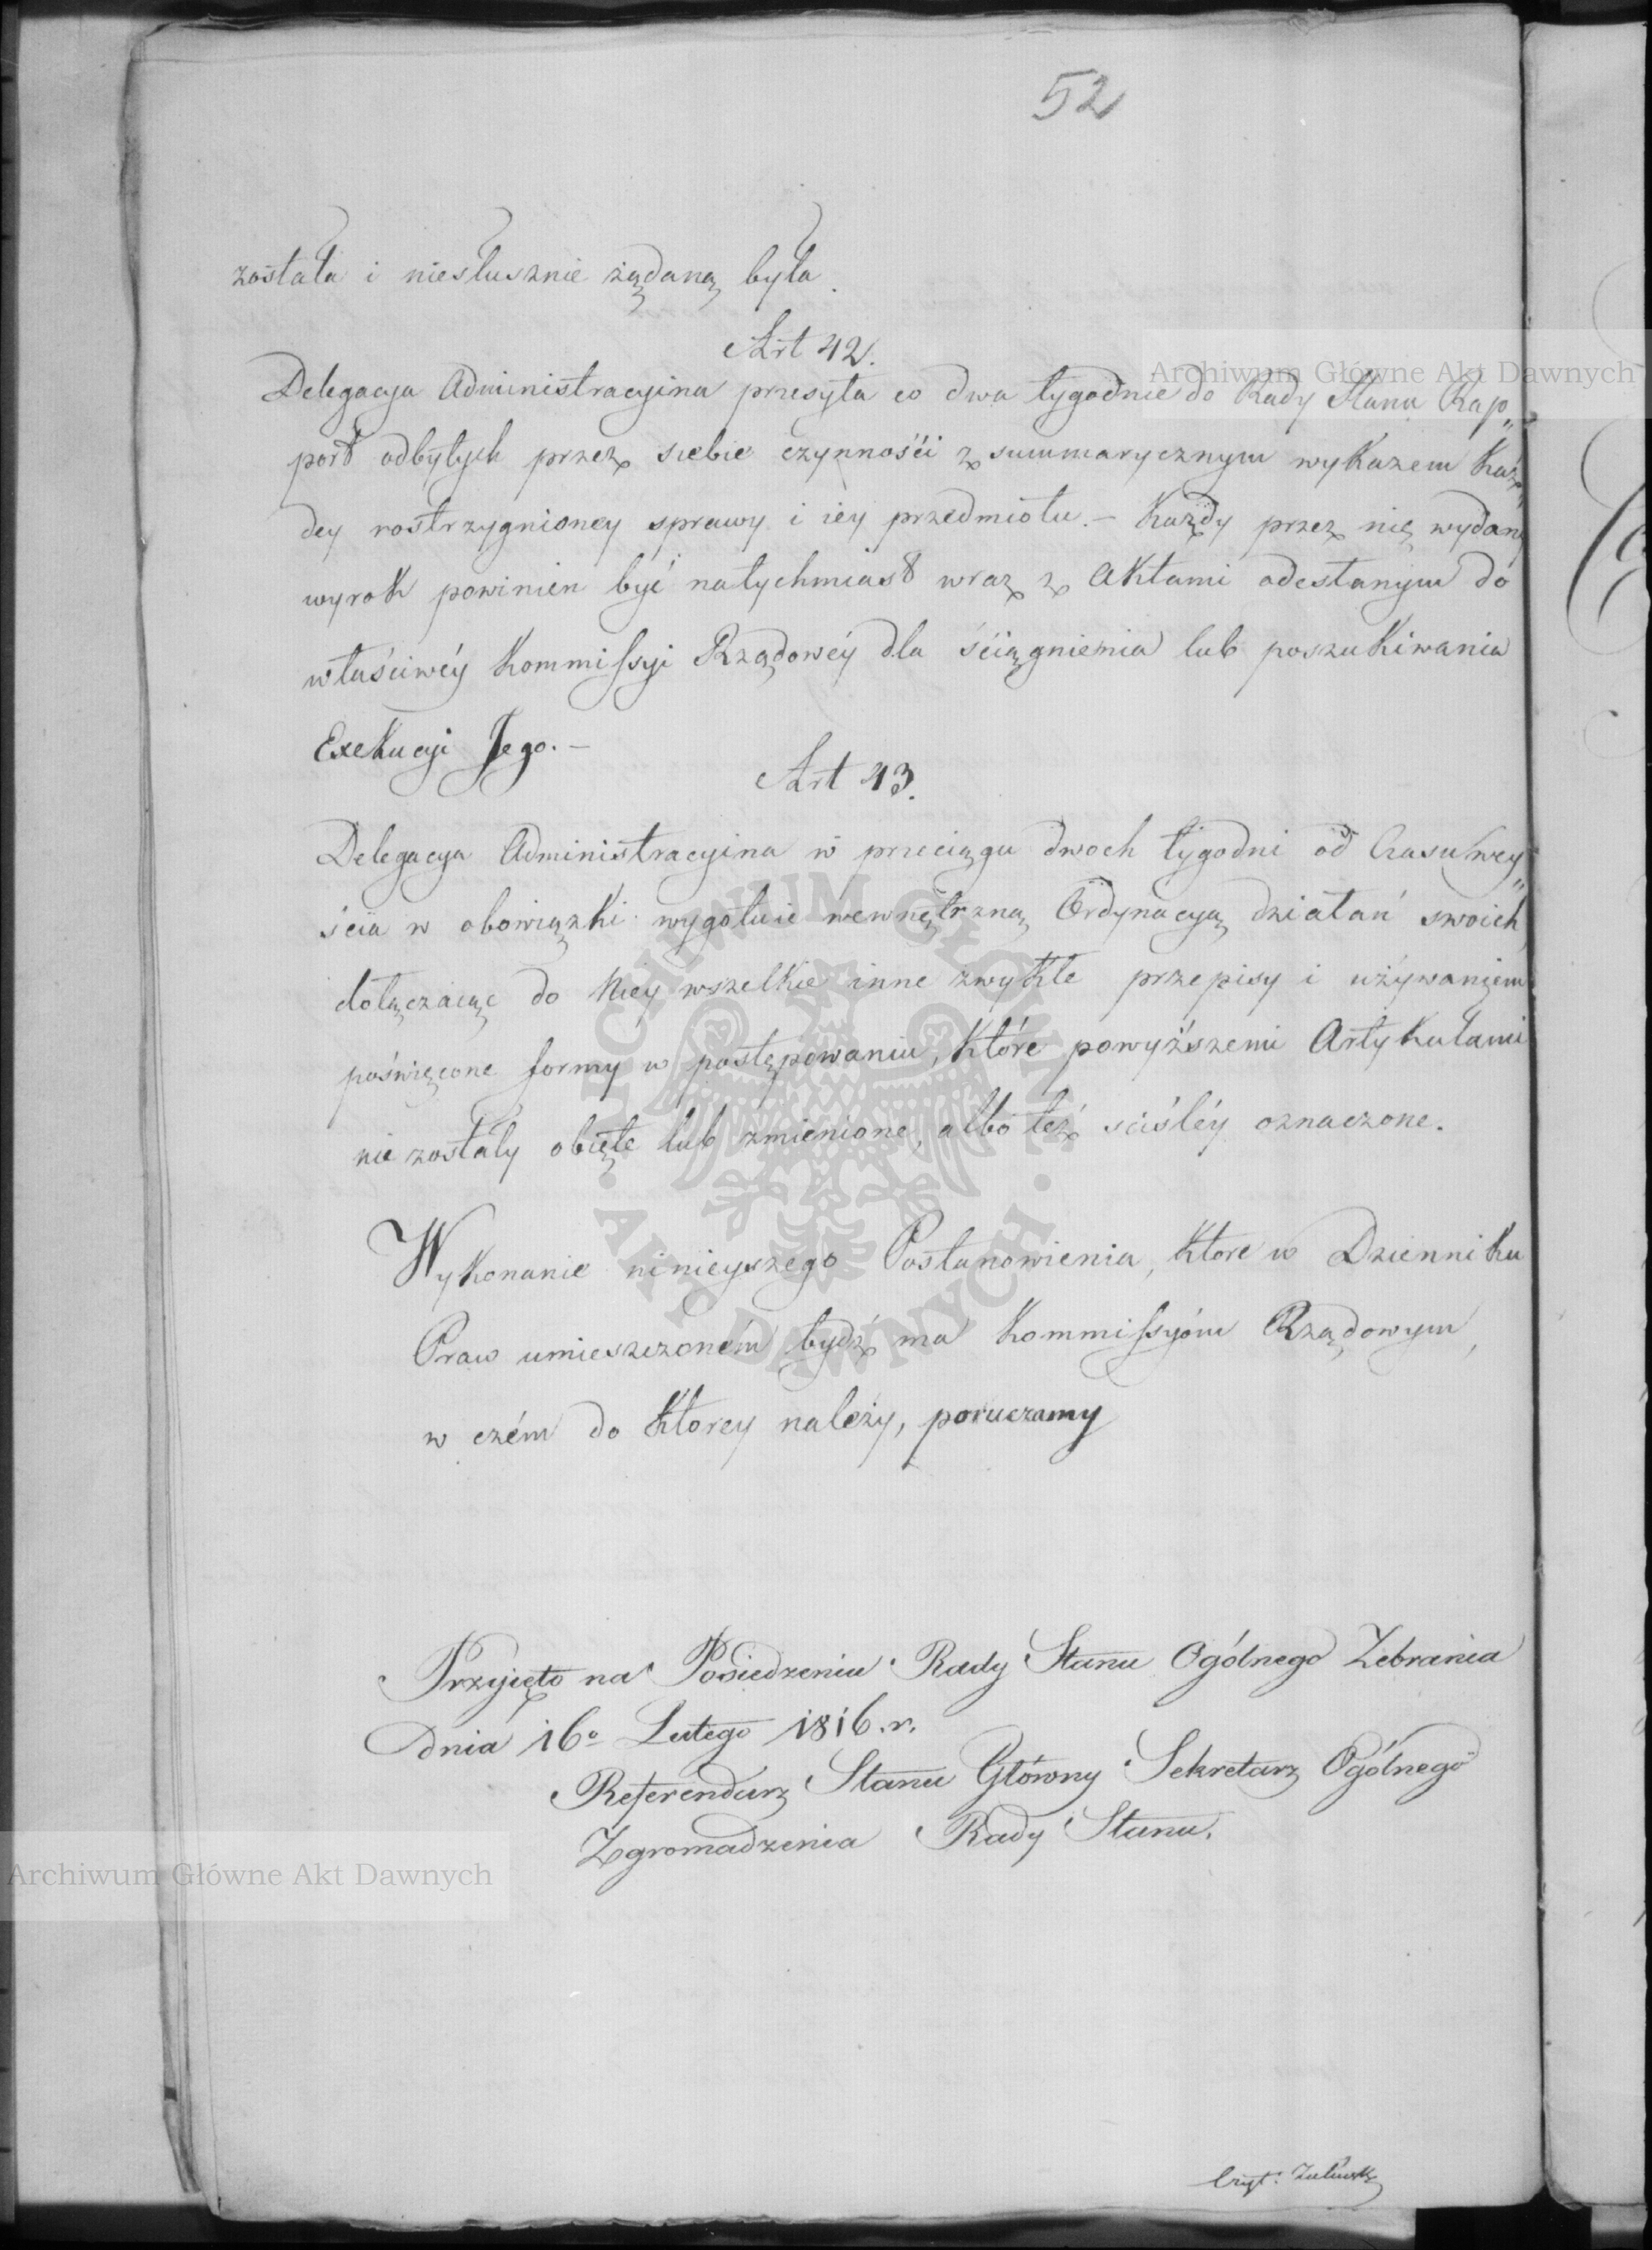 52
została i niesłusznie żądaną była.
Art 42.
Delegacya Administracyina przesyła co dwa tygodnie do Rady Stanu Rap„
port odbytych przez siebie czynności z summarycznym wykazem każ„
dey rostrzygnioney sprawy i iey przedmiotu. – Każdy przez nię wydany
wyrok powinien być natychmiast wraz z Aktami odesłanym do
właściwéy Kommissyi Rządowéy dla ściągnienia lub poszukiwania
Exekucyi Jego. –
Art 43.
Delegacya Administracyina w przeciągu dwoch tygodni od Czasu wey„
ścia w obowiązki wygotuie wewnętrzną Ordynacyą działań swoich,
dołączaiąc do niey wszelkie inne zwykłe przepisy i używaniem
poświęcone formy w postępowaniu, które powyższemi Artykułami
nie zostały obięte lub zmienione, albo też ściśléy oznaczone.
Wykonanie ninieyszego Postanowienia, które w Dzienniku
Praw umieszczoném bydź ma Kommissyóm Rządowym,
w czém do którey należy, poruczamy
Przyięto na Posiedzeniu Rady Stanu Ogólnego Zebrania
dnia 16o Lutego 1816. r.
Referendarz Stanu Główny Sekretarz Ogólnego
Zgromadzenia Rady Stanu.
Archiwum Główne Akt Dawnych
Archiwum Główne Akt Dawnych
ARCHIWUM GŁÓWNE · AKT DAWNYCH ·